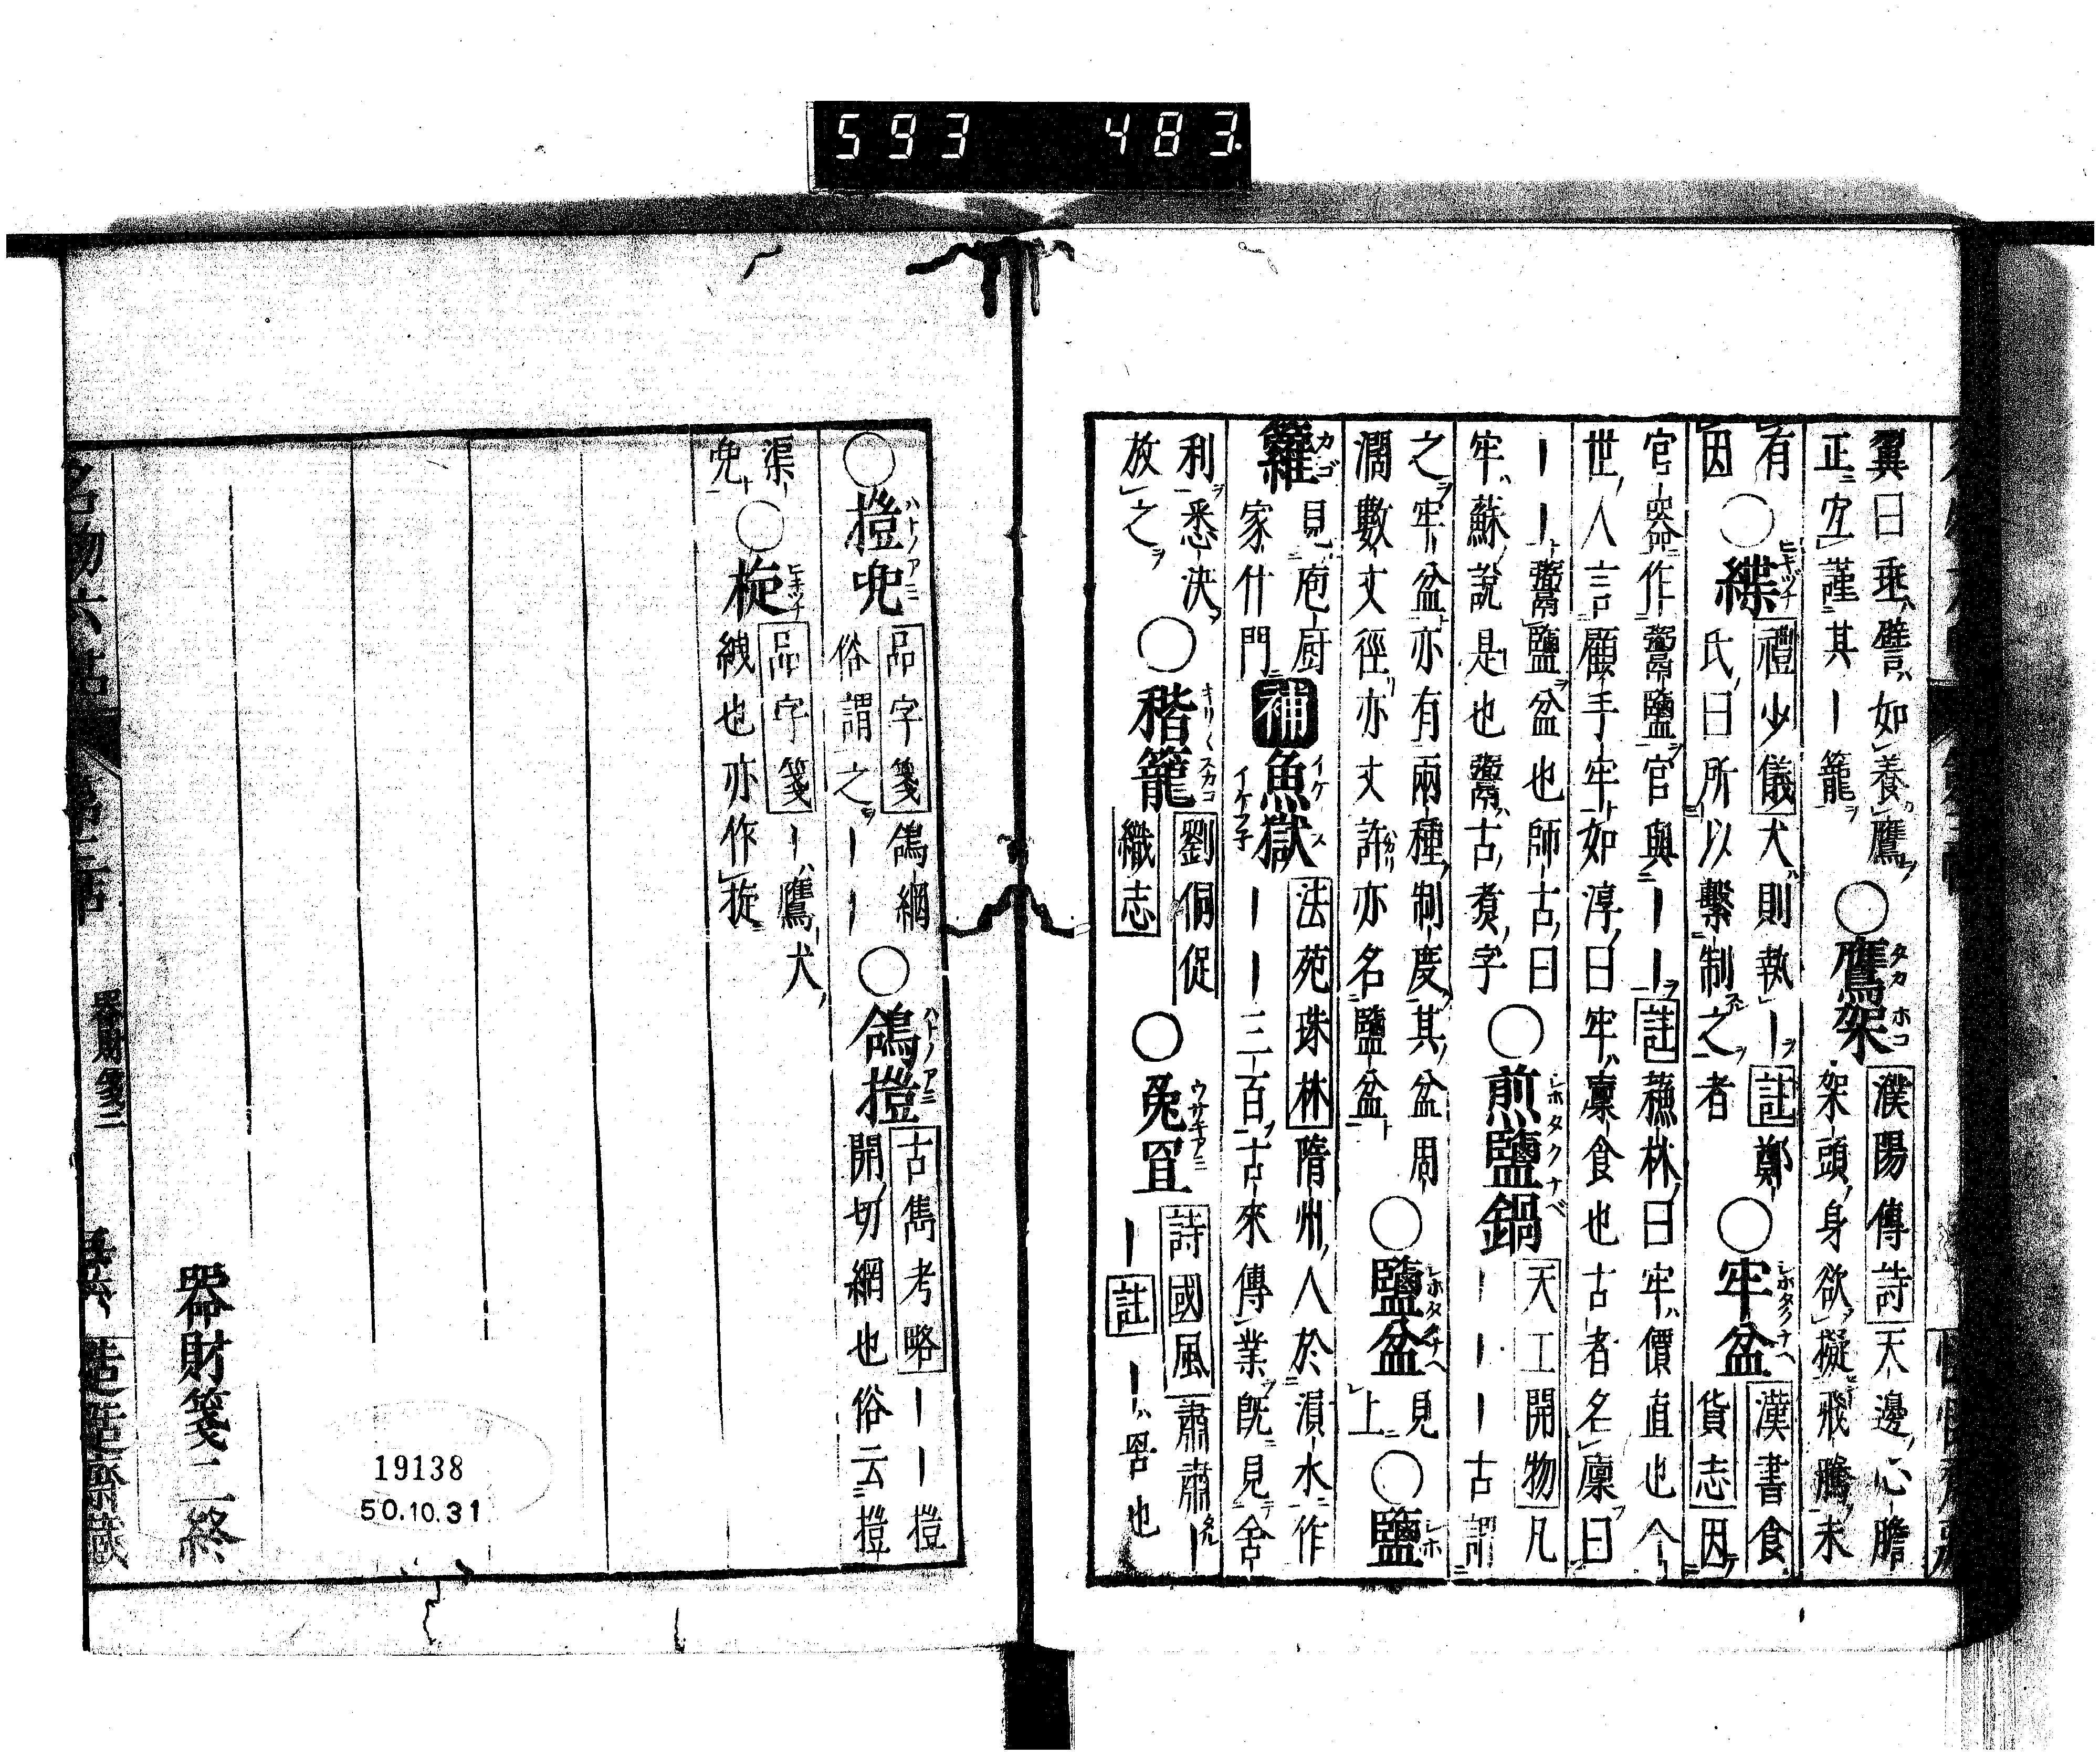 593 483.
翼曰垂譬如養鷹 ○鷹架 タカホコ 濮陽傳詩 天邊心膽
正宜謹其｜籠 架頭身欲擬飛騰未
有 ○緤 ヒキヅナ 禮少儀 犬則執｜ 註 鄭 ○牢盆 シホタクナベ 漢書食
因 氏曰所以繫制之者 貨志 因
官器作鬻鹽官與｜｜ 註 蘓林曰牢價直也今
世人言顧手牢如淳曰牢廩食也古者名廩曰
｜｜鬻鹽盆也師古曰 ○煎鹽鍋 シホタクナベ 天工開物 凡
牢蘇說是也鬻古煑字 ｜｜｜古謂
之牢盆亦有兩種制度其盆周 ○鹽盆 シホタクナベ 見 ○鹽 シホ
濶數丈徑亦丈許亦名鹽盆 上
籮 カゴ 見庖廚 補 魚獄 イケス 法苑珠林 隋州人於溳水作
家什門 イケフ子 ｜｜三百古來傳業旣見舍
利悉決 ○稭籠 キリ〱スカコ 劉侗促 ○兔罝 ウサギアミ 詩國風 肅肅｜
放之 織志 ｜ 註 ｜罟也
○𢴤兜 ハトノアミ 品字箋 鴿網 ○鴿𢴤 ハトノアミ 古雋考略 ｜｜𢴤
俗謂之｜｜ 開切網也俗云𢴤
渠 ○㯀 ヒキヅナ 品字箋 ｜鷹犬
兜 紲也亦作
器財箋二終
名物六帖 第二帖 器財箋二
19138
50.10.31